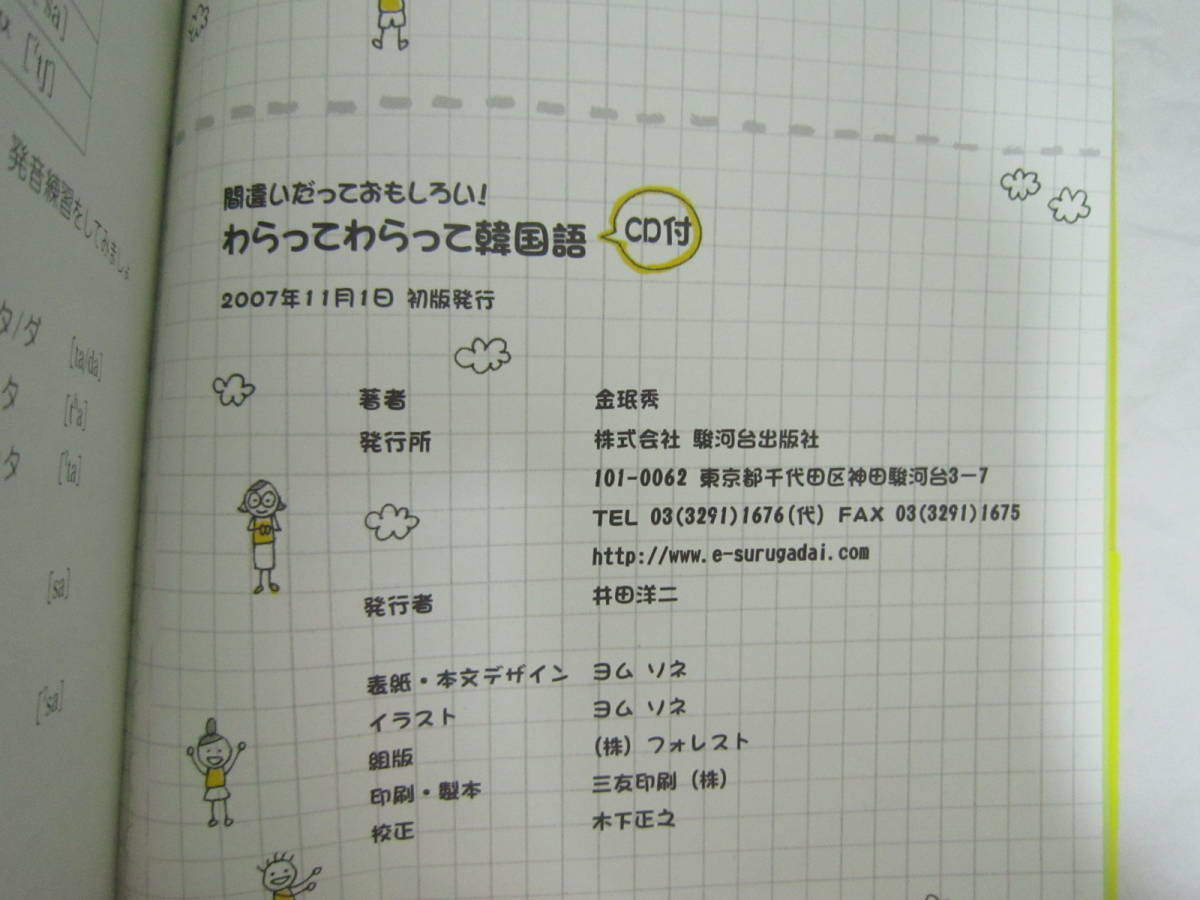 発音練習をしてみましょ
タ/ダ [ta/da]
タ [tʰa]
タ [ˀta]
[sa]
[ˀsa]
間違いだっておもしろい!
わらってわらって韓国語 CD付
2007年11月1日 初版発行
著者 金珉秀
発行所 株式会社 駿河台出版社
101-0062 東京都千代田区神田駿河台3-7
TEL 03(3291)1676(代) FAX 03(3291)1675
http://www.e-surugadai.com
発行者 井田洋二
表紙・本文デザイン ヨム ソネ
イラスト ヨム ソネ
組版 (株) フォレスト
印刷・製本 三友印刷 (株)
校正 木下正之